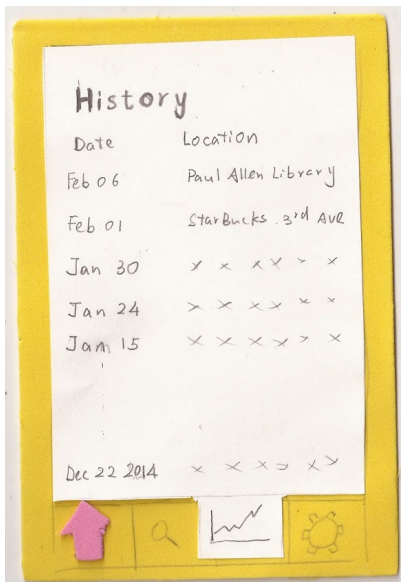 History
Date Location
Feb 06 Paul Allen Library
Feb 01 StarBucks . 3rd Ave
Jan 30 x x x x x x
Jan 24 x x x x x x
Jam 15 x x x x x x
Dec 22 2014 x x x x x x